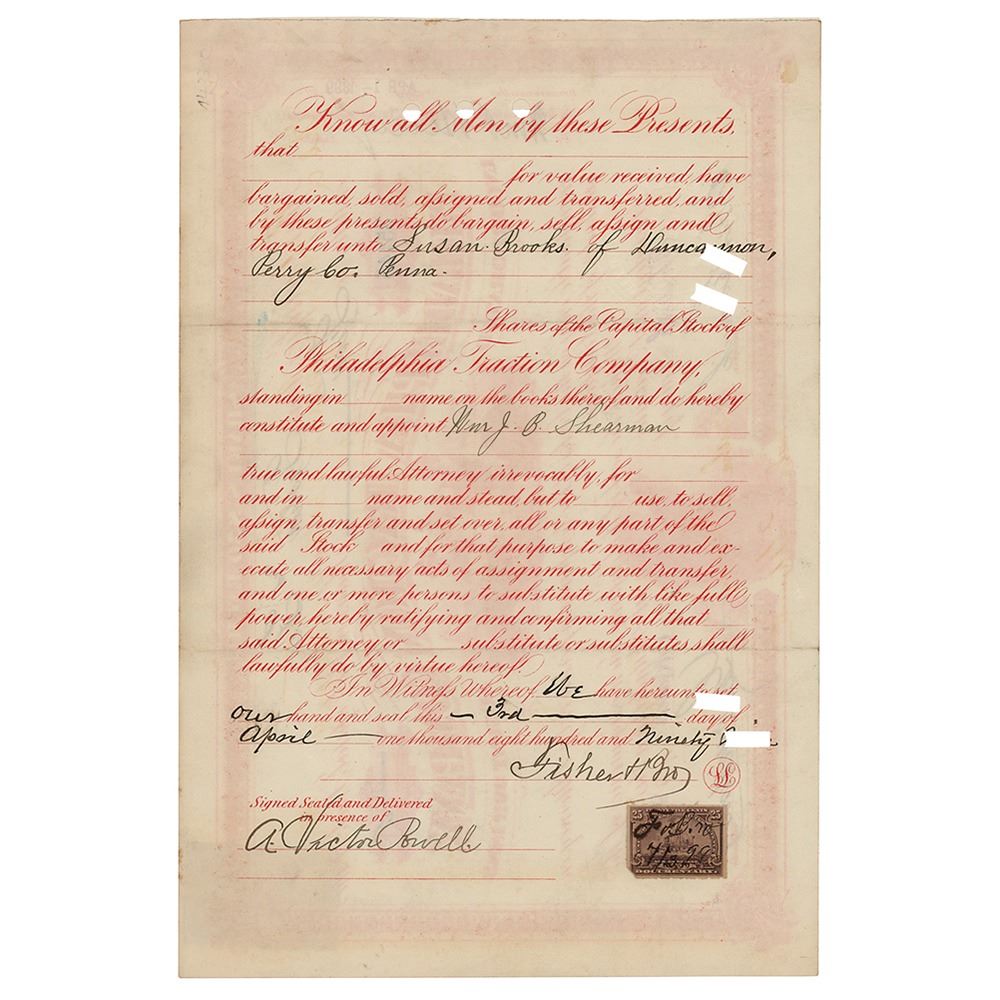 Know all Men by these Presents,
that
for value received, have
bargained, sold, assigned and transferred, and
by these presents do bargain, sell, assign and
transfer unto Susan Brooks. of Duncannon,
Perry Co. Penna.
Shares of the Capital Stock of
Philadelphia Traction Company,
standing in name on the books thereof and do hereby
constitute and appoint Wm J. B. Shearman
true and lawful Attorney irrevocably, for
and in name and stead, but to use, to sell,
assign, transfer and set over, all or any part of the
said Stock and for that purpose to make and ex-
ecute all necessary acts of assignment and transfer,
and one or more persons to substitute with like full
power, hereby ratifying and confirming all that
said Attorney or substitute or substitutes shall
lawfully do by virtue hereof.
In Witness Whereof We have hereunto set
our hand and seal this 3rd day of
April one thousand eight hundred and Ninety
Fisher & Bro
LS
Signed Sealed and Delivered
in presence of
A. Victor Powell
25 25
DOCUMENTARY.